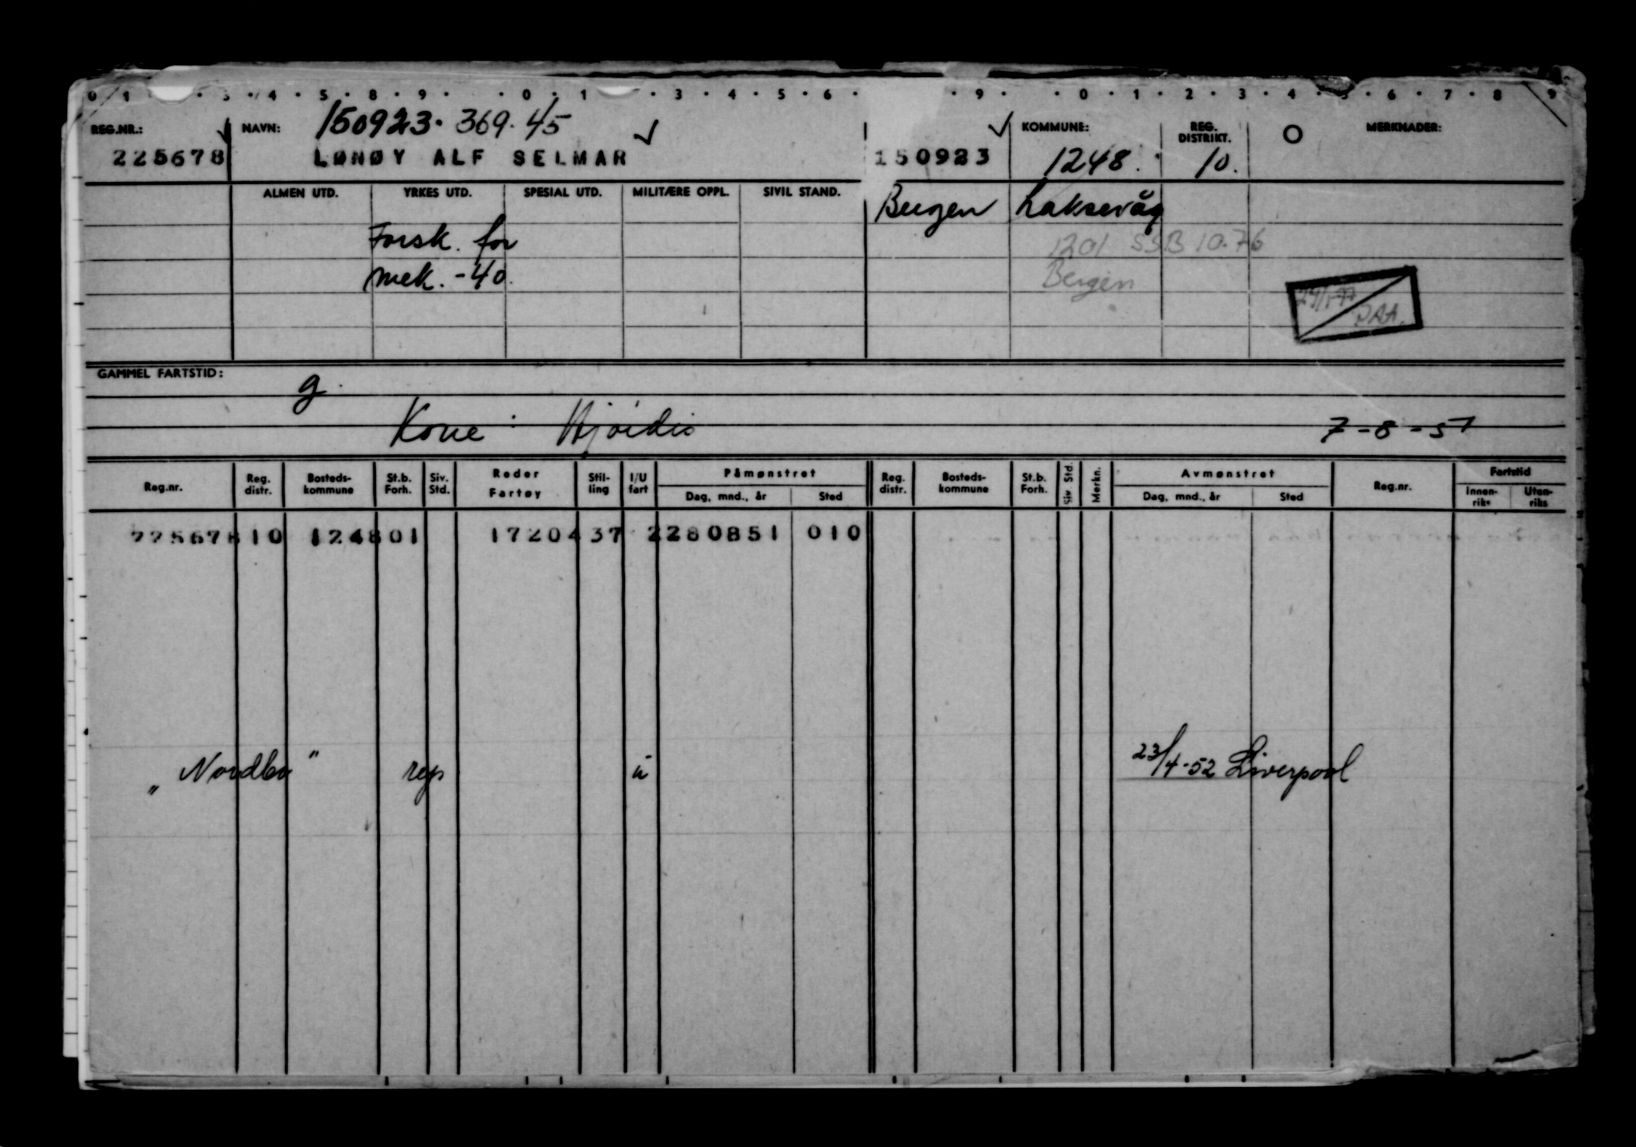 0 1 · 3 · 4 · 5 · 8 · 9 · · 0 · 1 · 3 · 4 · 5 · 6 · · 9 · · 0 · 1 · 2 · 3 · 4 · 5 · 6 · 7 · 8 9
REG.NR.: NAVN: 150923. 369.45 KOMMUNE: REG. DISTRIKT. O MERKNADER:
225678 LØNØY ALF SELMAR 150923 1248. 10.
ALMEN UTD. YRKES UTD. SPESIAL UTD. MILITÆRE OPPL. SIVIL STAND. Bergen Laksevåg
Forsk. for 1201 SSB 10.76
mek. -40. Bergen
GAMMEL FARTSTID: g.
Kone : Hjørdis 7-8-51
Reg.nr. Reg. distr. Bosteds- kommune St.b. Forh. Siv. Std. Reder Fartøy Stil- ling I/U fart Påmønstret Dag, mnd., år Sted Reg. distr. Bosteds- kommune St.b. Forh. Siv. Std. Merkn. Avmønstret Dag, mnd., år Sted Reg.nr. Fartstid Innen- riks Uten- riks
225678 10 124801 1720437 2280851 010
"Nordbo" rep u 23/4-52 Liverpool